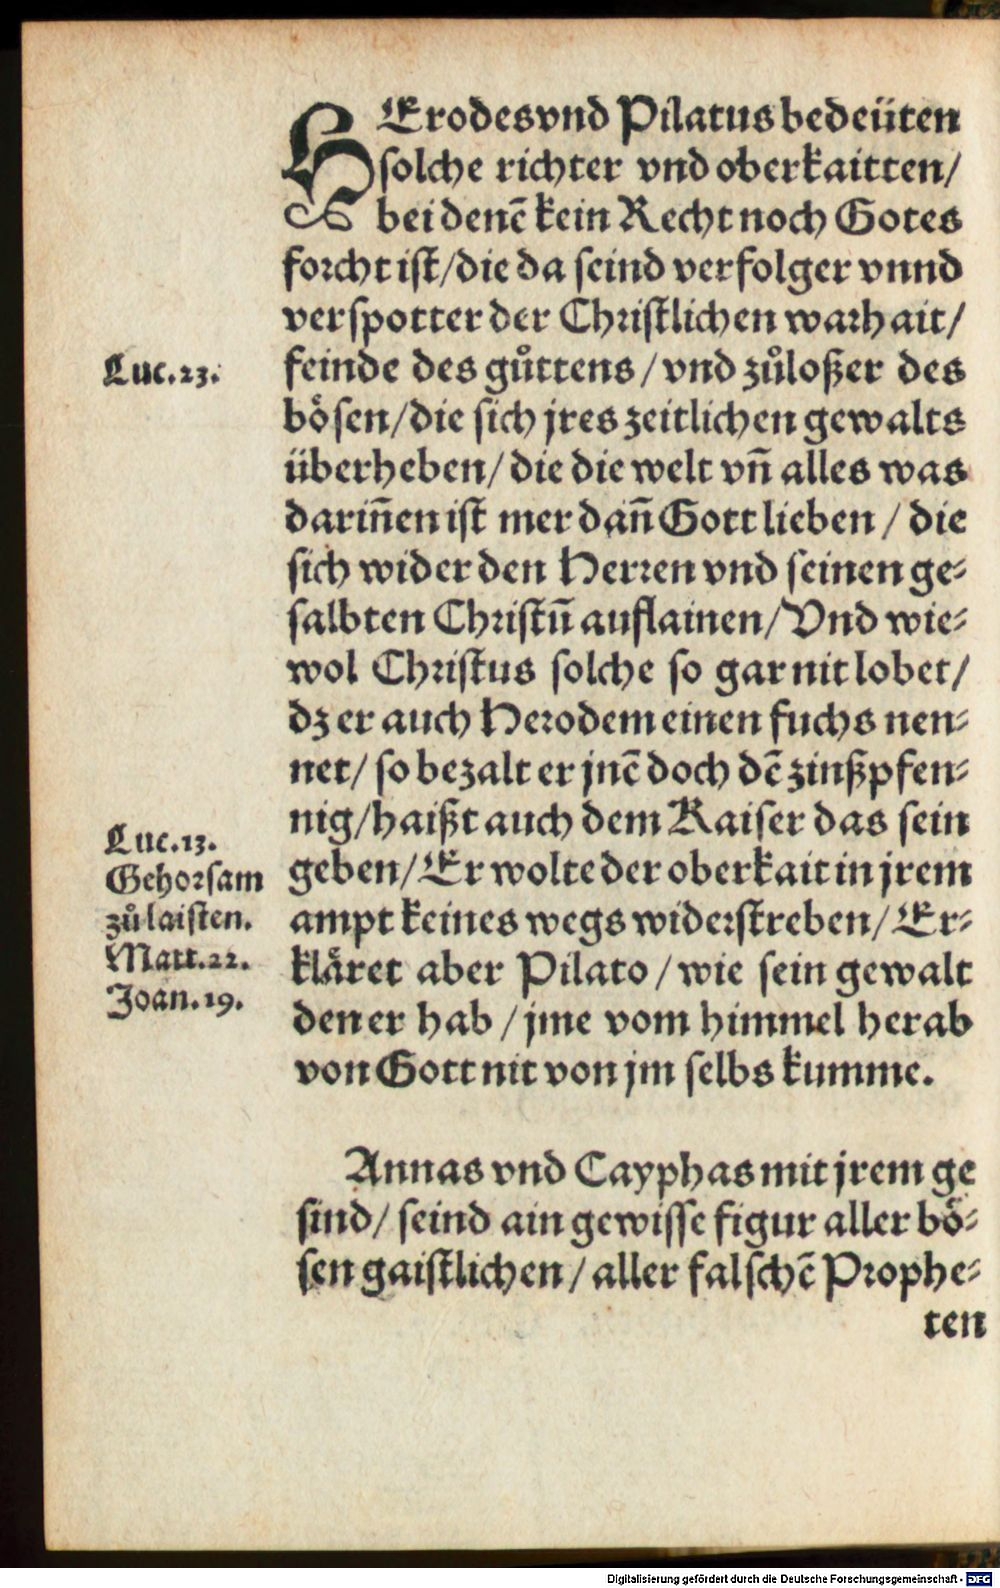 HErodes vnd Pilatus bedeüten
solche richter vnd oberkaitten/
bei denē kein Recht noch Gotes
forcht ist/die da seind verfolger vnnd
verspotter der Christlichen warhait/
Luc.23.
feinde des gůttens/vnd zůloßer des
bösen/die sich jres zeitlichen gewalts
überheben/die die welt vñ alles was
dariñen ist mer dañ Gott lieben/die
sich wider den Herren vnd seinen ge⸗
salbten Christū auflainen/Vnd wie⸗
wol Christus solche so gar nit lobet/
dz er auch Herodem einen fuchs nen⸗
net/so bezalt er jnē doch dē zinßpfen⸗
nig/haißt auch dem Kaiser das sein
geben/Er wolte der oberkait in jrem
ampt keines wegs widerstreben/Er⸗
kläret aber Pilato/wie sein gewalt
den er hab/jme vom himmel herab
von Gott nit von jm selbs kumme.
Luc.13.
Gehorsam
zů laisten.
Matt.22.
Joan.19.
Annas vnd Cayphas mit jrem ge
sind/seind ain gewisse figur aller bö⸗
sen gaistlichen/aller falschē Prophe⸗
ten
Digitalisierung gefördert durch die Deutsche Forschungsgemeinschaft - DFG